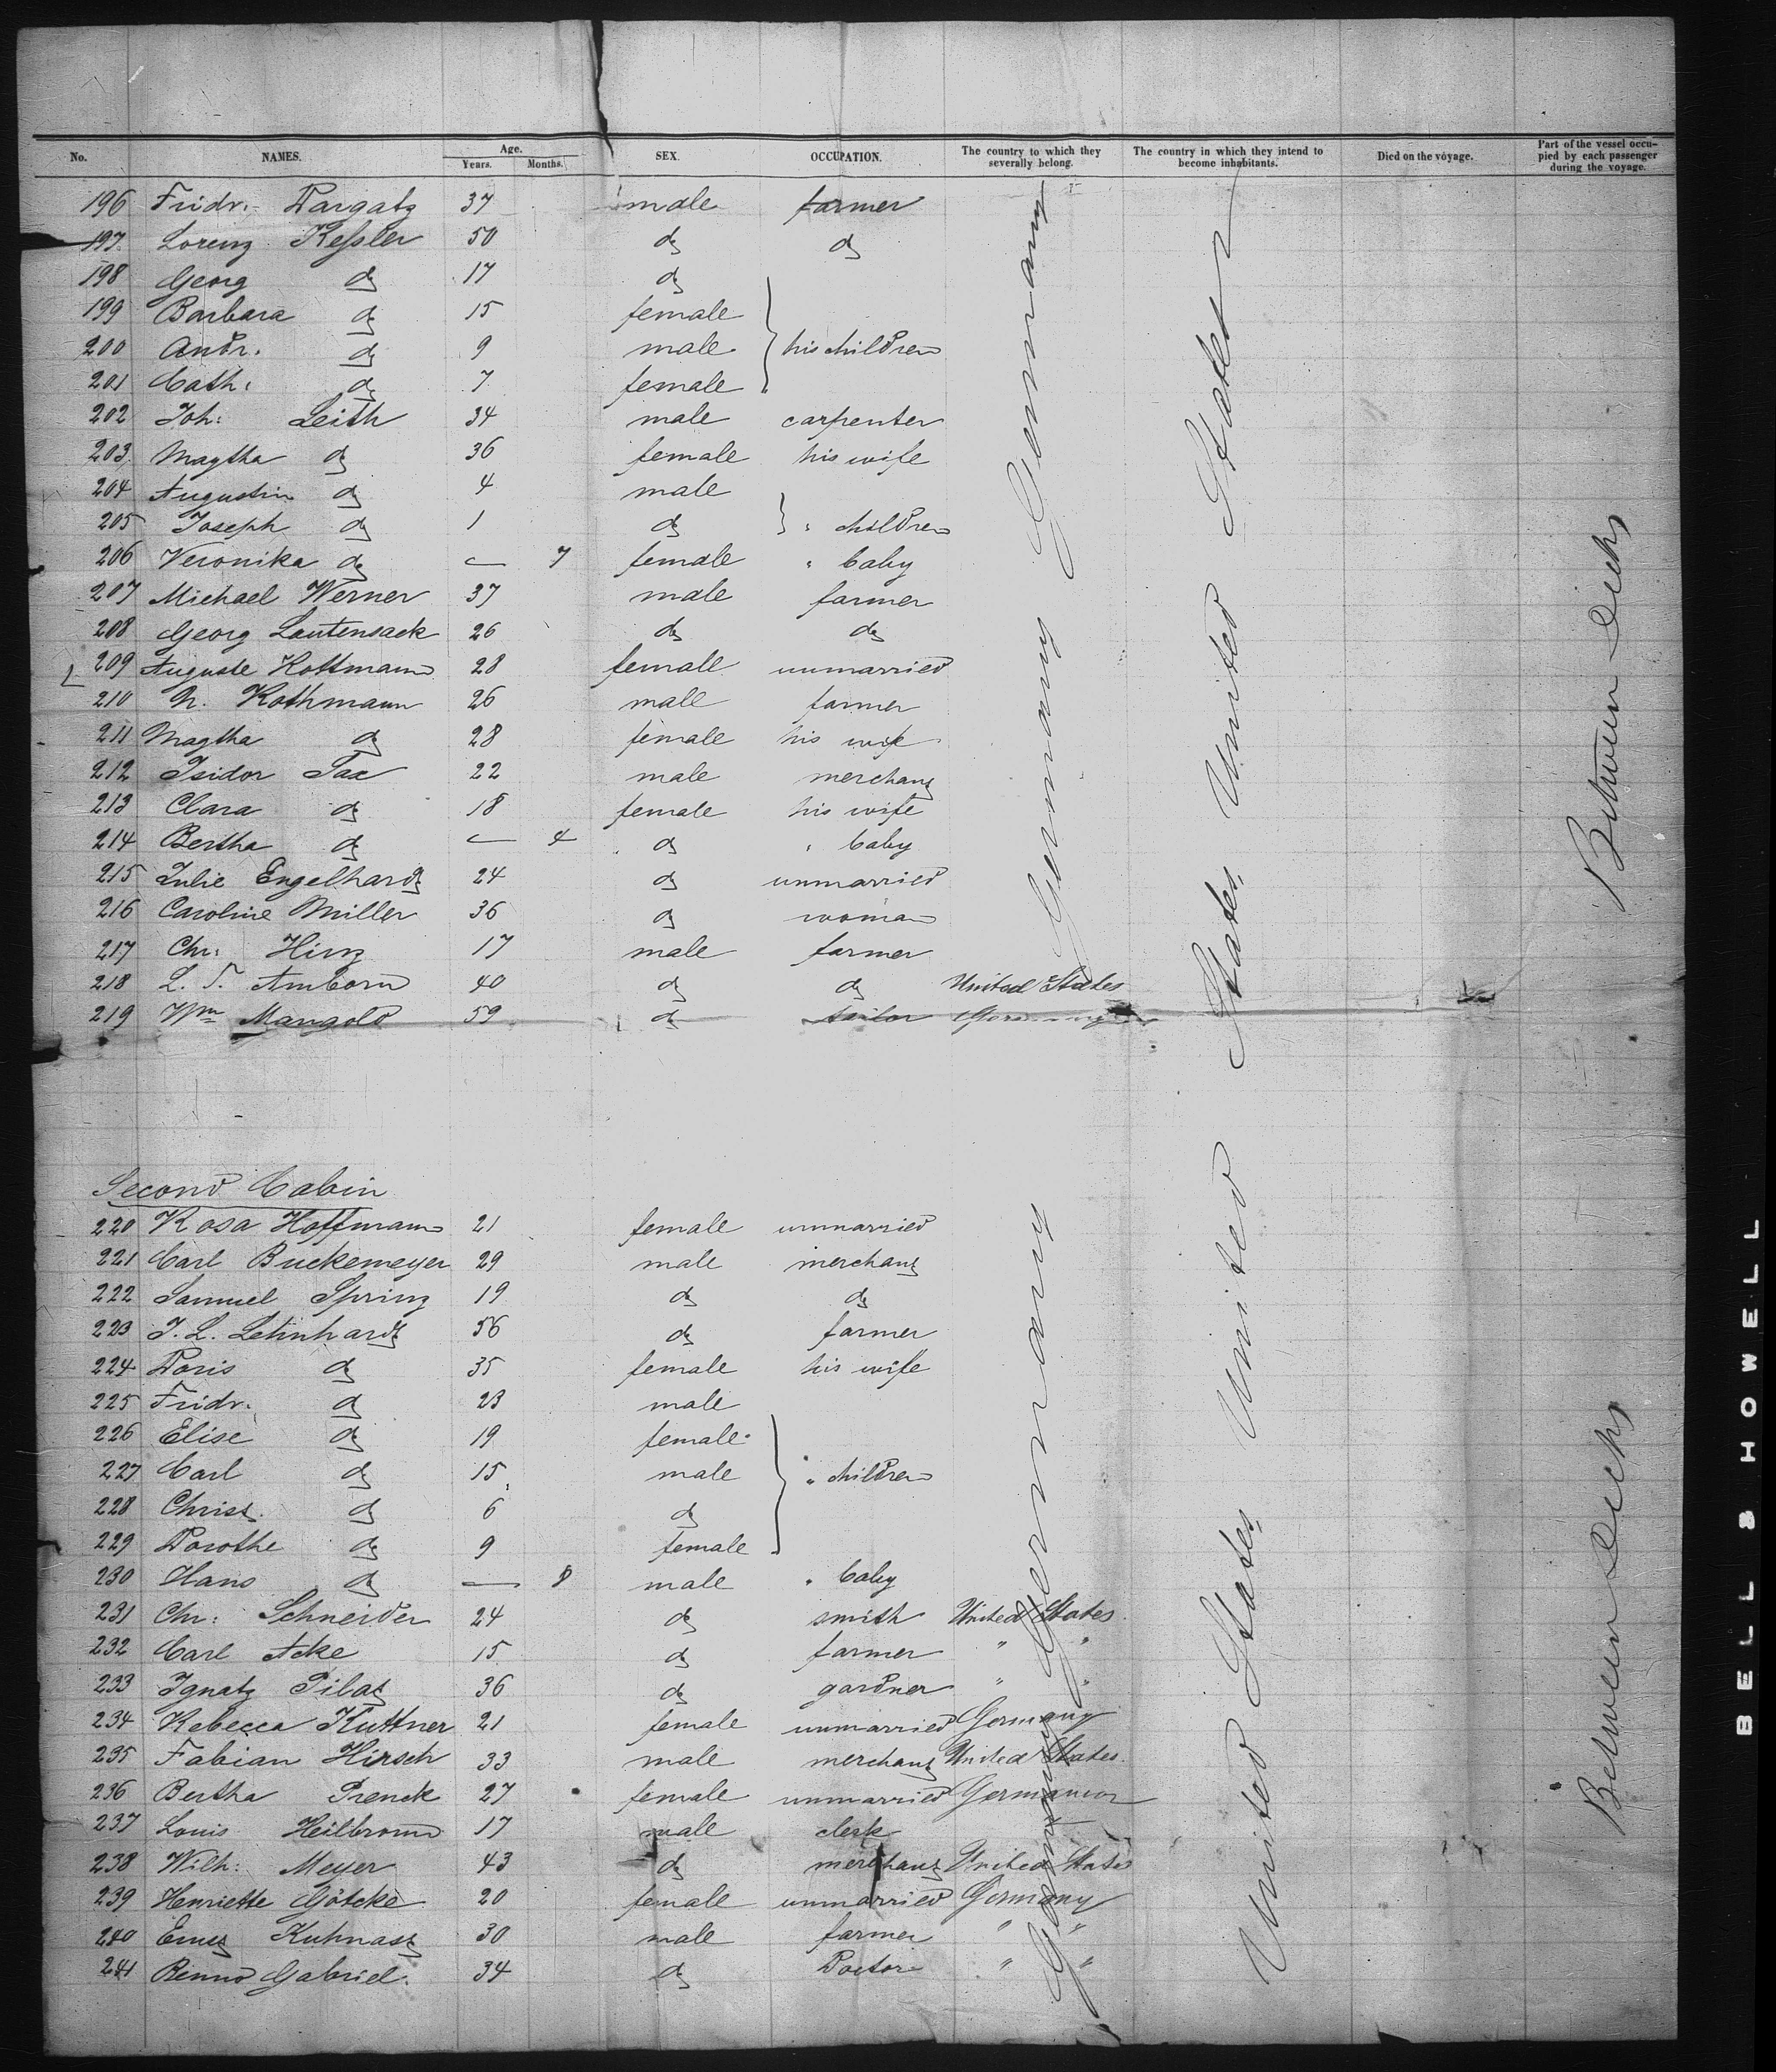 No. NAMES. Age. Years. Months. SEX. OCCUPATION. The country to which they severally belong. The country in which they intend to become inhabitants. Died on the voyage. Part of the vessel occupied by each passenger during the voyage.
196 Fridr. Dargatz 37 male farmer
197 Lorenz Kessler 50 do do
198 Georg do 17 do
199 Barbara do 15 female
200 Andr. do 9 male his children
201 Cath: do 7 female
202 Joh: Leith 34 male carpenter
203 Magtha do 36 female his wife
204 Augustin do 4 male
205 Joseph do 1 do " children
206 Veronika do — 7 female " baby
207 Michael Werner 37 male farmer
208 Georg Lautensack 26 do do
209 Auguste Kottmann 28 female unmarried
210 N. Kothmann 26 male farmer
211 Magtha do 28 female his wife
212 Isidor Tac 22 male merchant
213 Clara do 18 female his wife
214 Bertha do — 4 do " baby
215 Julie Engelhardt 24 do unmarried
216 Caroline Miller 36 do woman
217 Chr: Hinz 17 male farmer
218 L. T. Amborn 40 do do United States
219 Wm Mangold 59 do tailor Germany
Germany Germany
United States United States
Between Decks
Second Cabin
220 Rosa Hoffmann 21 female unmarried
221 Carl Buckemeyer 29 male merchant
222 Samuel Spring 19 do do
223 J. L. Lehnhardt 56 do farmer
224 Doris do 35 female his wife
225 Fridr. do 23 male
226 Elise do 19 female
227 Carl do 15 male " children
228 Christ. do 6 do
229 Dorothe do 9 female
230 Hans do — 8 male " baby
231 Chr: Schneider 24 do smith United States
232 Carl Acke 15 do farmer " "
233 Ignatz Pilat 36 do gardner " "
234 Rebecca Kuttner 21 female unmarried Germany
235 Fabian Hirsch 33 male merchant United States
236 Bertha Prenck 27 female unmarried
237 Louis Heilbronn 17 male clerk
238 Wilh: Meyer 43 do merchant United States
239 Henriette Götcke 20 female unmarried Germany
240 Ernst Kuhnast 30 male farmer " "
241 Benno Gabriel. 34 do Doctor " "
Germany Germany
United States United
Between Decks
BELL & HOWELL